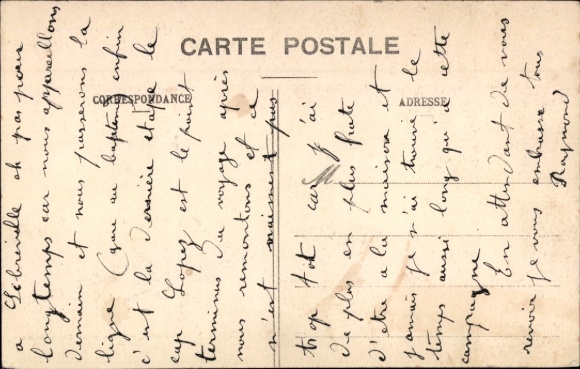 CARTE POSTALE
CORRESPONDANCE
ADRESSE
M
a Libreville oh pas pour
longtemps car nous appareillons
demain et nous passerons la
ligne (gare au baptême) enfin
c'est la dernière étape le
cap Lopez est le point
terminus du voyage après
nous remontons et ce
n'est vraiment pas
trop tot car j'ai
de plus en plus hate
d'etre a la maison et
jamais je n'ai trouvé le
temps aussi long qu'a cette
campagne
En attendant de vous
revoir je vous embrasse tous
Raymond